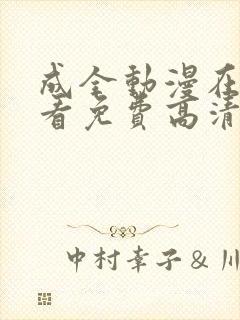 成全動漫在
看免費高清
中村幸子&川